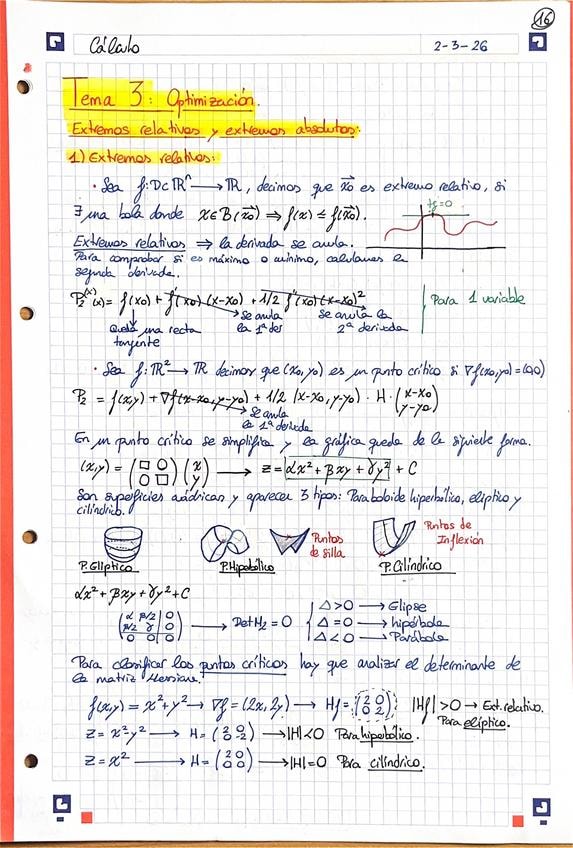 16
Cálculo 2-3-26
Tema 3: Optimización.
Extremos relativos y extremos absolutos:
1) Extremos relativos:
• Sea f: D⊂ℝⁿ → ℝ, decimos que x⃗₀ es extremo relativo, si
∃ una bola donde x∈B(x⃗₀) ⇒ f(x) ≤ f(x⃗₀).
∇f=0
Extremos relativos ⇒ la derivada se anula.
Para comprobar si es máximo o mínimo, calculamos la
segunda derivada.
P₂⁽ˣ⁾(x) = f(x₀) + f'(x₀)(x-x₀) + 1/2 f''(x₀)(x-x₀)²
Para 1 variable
Queda una recta tangente
se anula la 1ª der
se anula la 2ª derivada
• Sea f: ℝ² → ℝ decimos que (x₀,y₀) es un punto crítico si ∇f(x₀,y₀)=(0,0)
P₂ = f(x,y) + ∇f(x-x₀, y-y₀) + 1/2 (x-x₀, y-y₀) · H · (x-x₀ y-y₀)
se anula
la 1ª derivada
En un punto crítico se simplifica y la gráfica queda de la siguiente forma.
(x,y) = (□ 0 0 □) (x y) → z = αx² + βxy + γy² + C
Son superficies cuádricas y aparecen 3 tipos: Paraboloide hiperbólico, elíptico y
cilíndrico.
Puntos de silla
Puntos de Inflexión
P. Elíptico P. Hiperbólico P. Cilíndrico
αx² + βxy + γy² + C
(α β/2 0 β/2 γ 0 0 0 0) → Det H₂ = 0
Δ>0 → Elipse
Δ=0 → hipérbola
Δ<0 → Parábola
Para clasificar los puntos críticos hay que analizar el determinante de
la matriz Hessiana.
f(x,y) = x²+y² → ∇f = (2x,2y) → Hf = (2 0 0 2) |Hf| >0 → Ext. relativo.
Para elíptico.
z = x²y² → H = (2 0 0 2) → |H|<0 Para hiperbólico.
z = x² → H = (2 0 0 0) → |H|=0 Para cilíndrico.